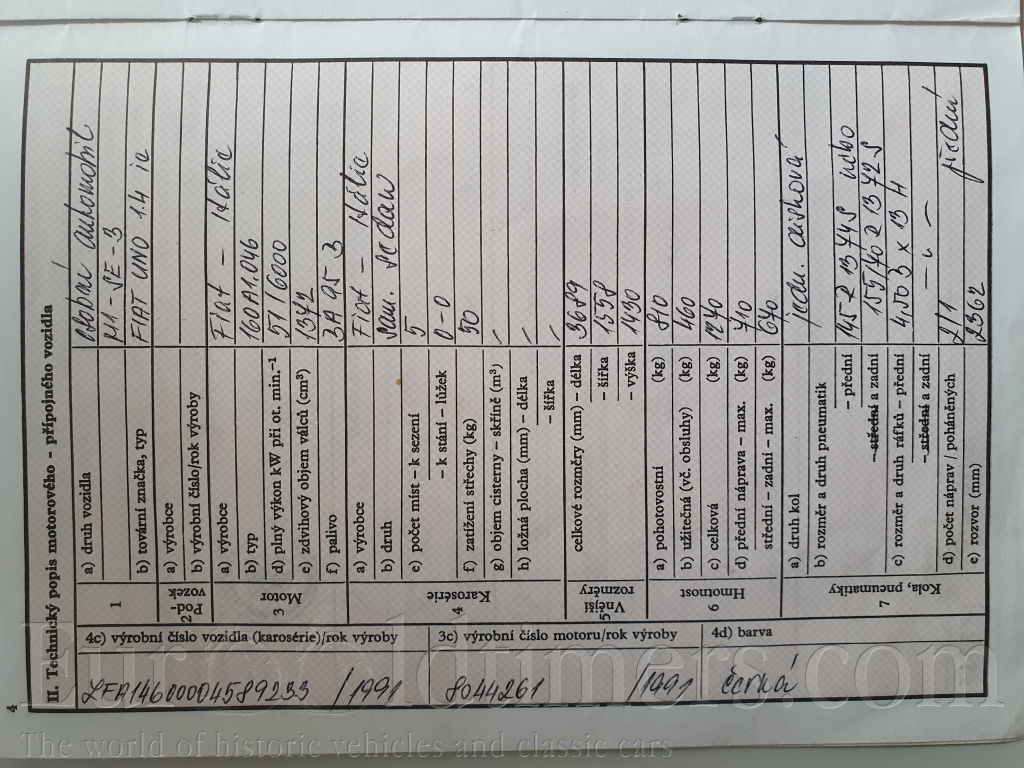 4
II. Technický popis motorového – přípojného vozidla
1
a) druh vozidla osobní automobil
M1 - SE - 3
b) tovární značka, typ FIAT UNO 1.4 ie
2 Pod-
vozek
a) výrobce
b) výrobní číslo/rok výroby
3 Motor
a) výrobce Fiat - Itálie
b) typ 160A1.046
d) plný výkon kW při ot. min.⁻¹ 51/6000
e) zdvihový objem válců (cm³) 1372
f) palivo BA 95 B
4 Karosérie
a) výrobce Fiat - Itálie
b) druh sedan
c) počet míst – k sezení 5
– k stání – lůžek 0-0
f) zatížení střechy (kg) 50
g) objem cisterny – skříně (m³) -
h) ložná plocha (mm) – délka -
– šířka -
5 Vnější
rozměry
celkové rozměry (mm) – délka 3689
– šířka 1558
– výška 1430
6 Hmotnost
a) pohotovostní (kg) 810
b) užitečná (vč. obsluhy) (kg) 460
c) celková (kg) 1270
d) přední náprava – max. (kg) 710
střední – zadní – max. (kg) 640
7 Kola, pneumatiky
a) druh kol jedn. disková
b) rozměr a druh pneumatik
– přední 145 R 13 74S nebo
– střední a zadní 155/70 R 13 72 S
c) rozměr a druh ráfků – přední 4,50 B x 13 H
– střední a zadní — u —
d) počet náprav / poháněných 2/1 přední
e) rozvor (mm) 2362
4c) výrobní číslo vozidla (karosérie)/rok výroby
ZFA14600004589233 /1991
3c) výrobní číslo motoru/rok výroby
8044261 /1991
4d) barva
černá
Eurooldtimers.com
The world of historic vehicles and classic cars